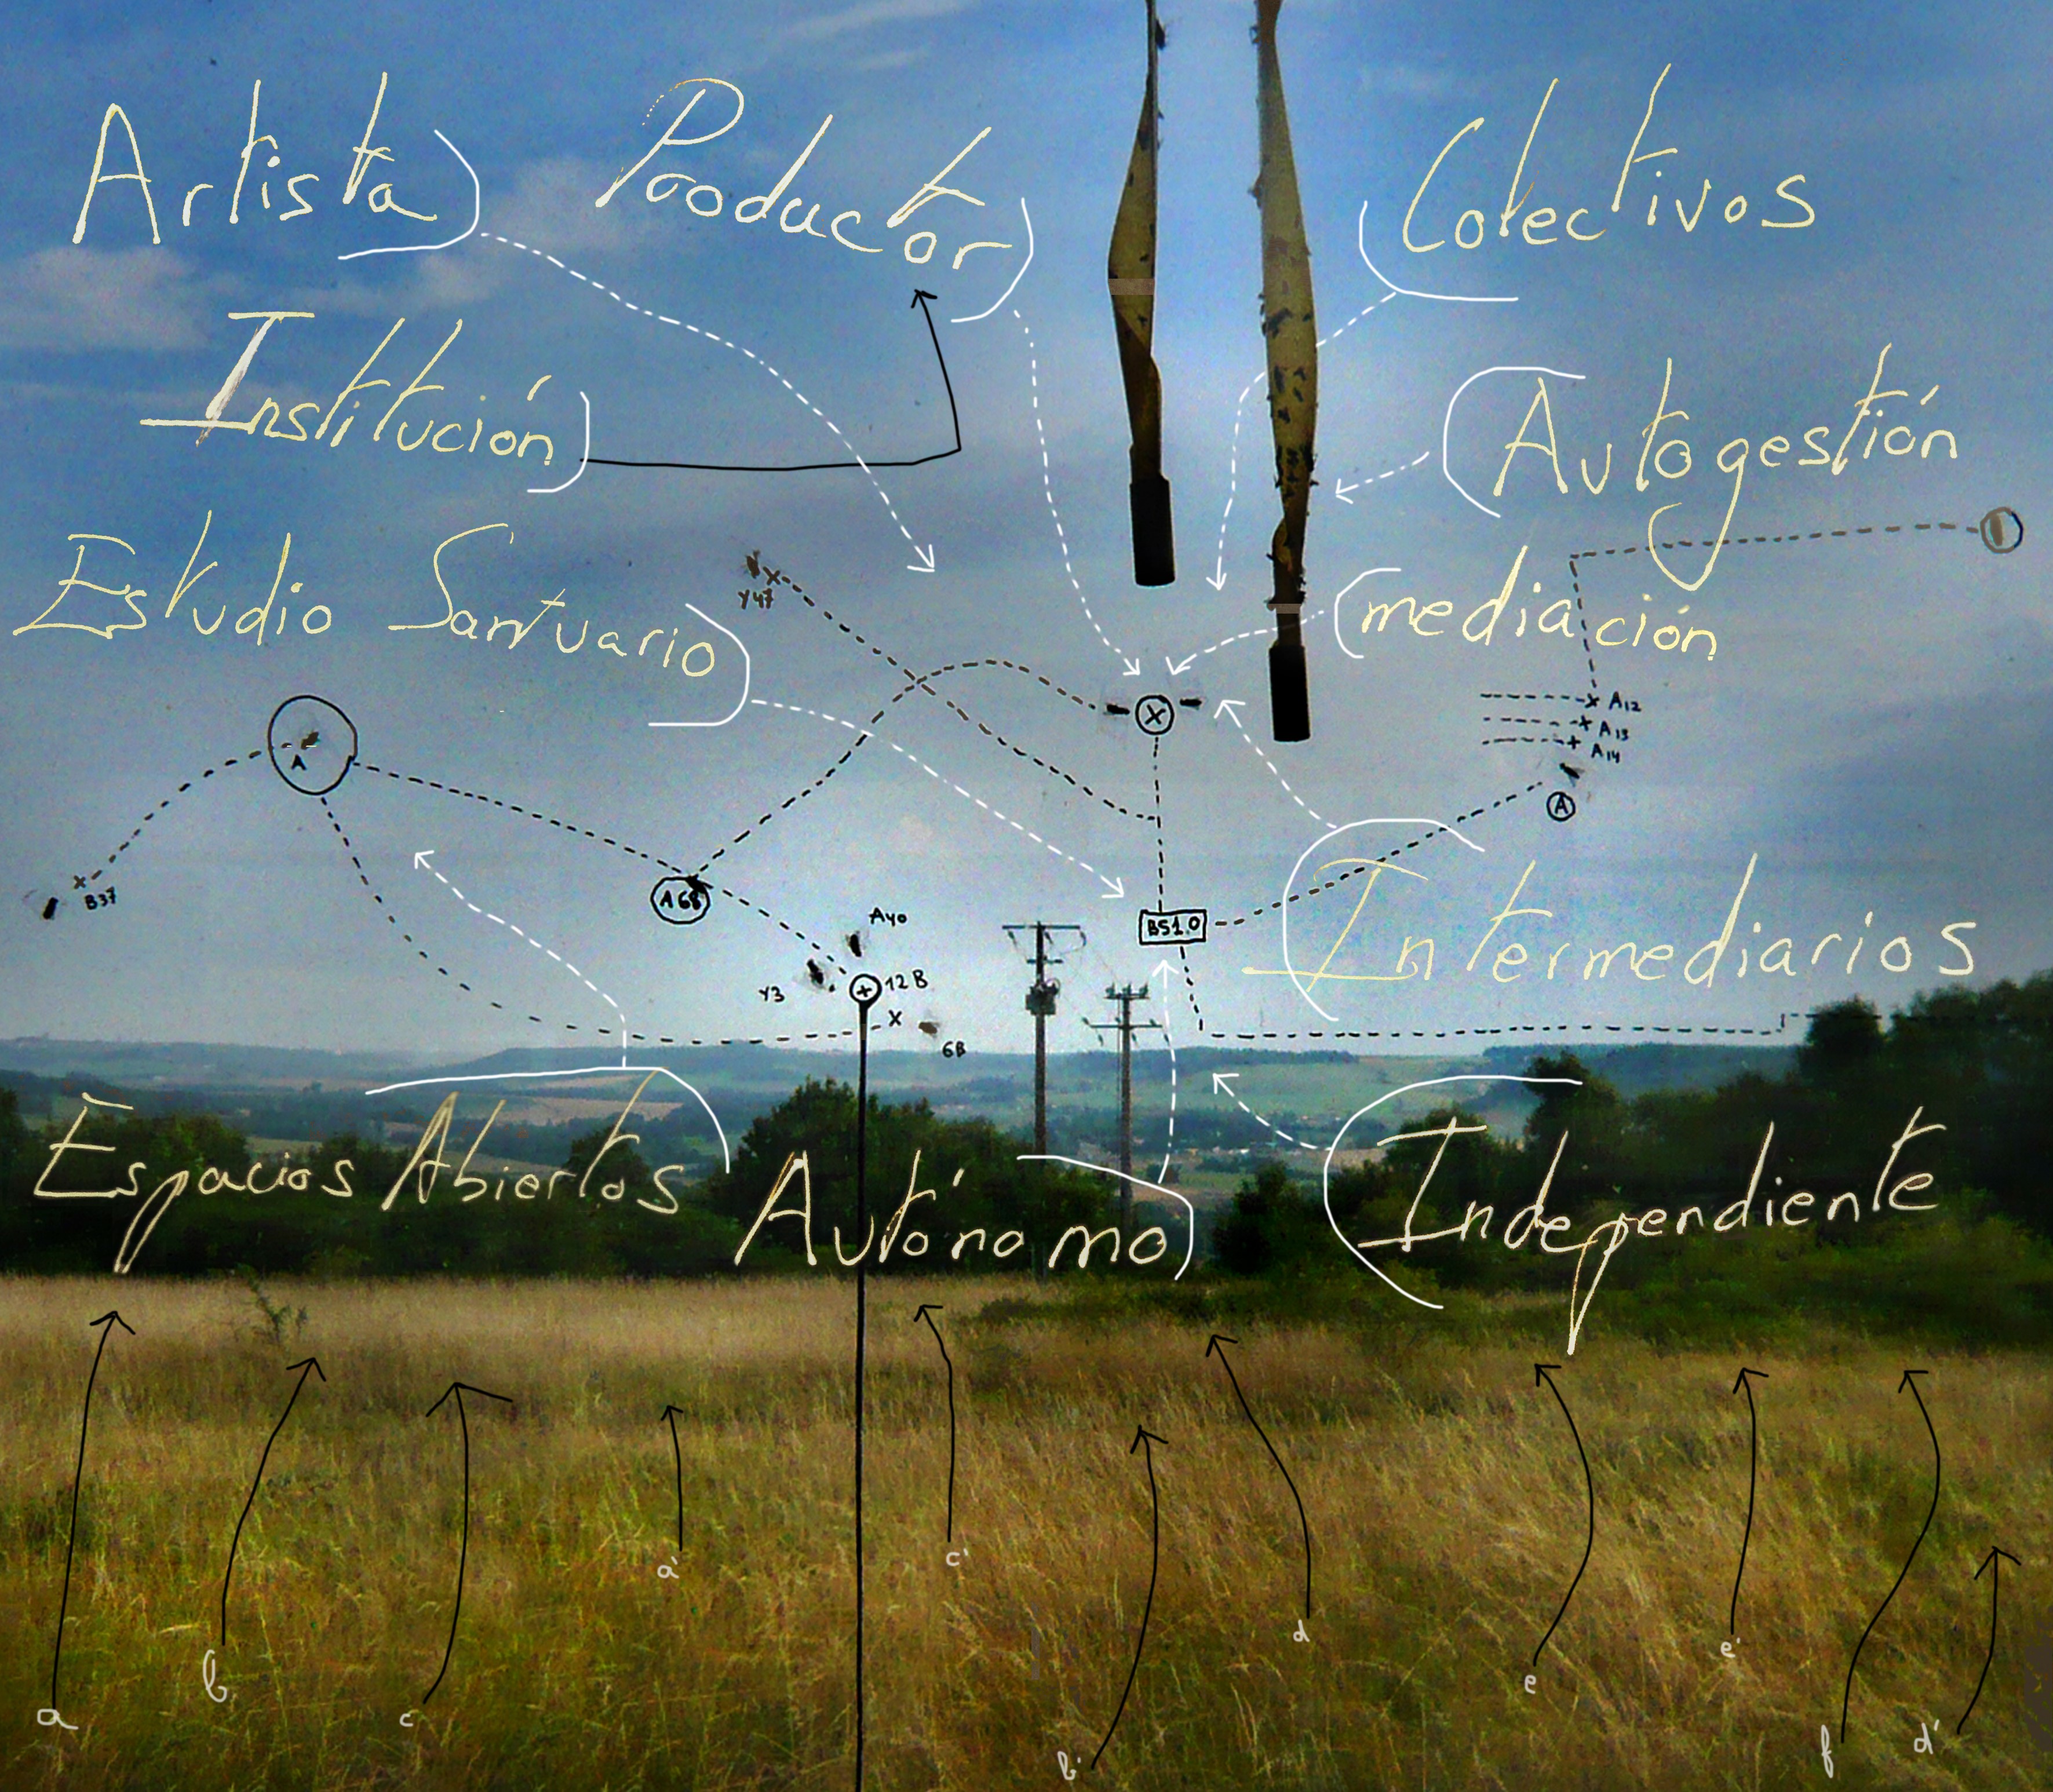 Artista Productor Colectivos
Institución Autogestión
Estudio Santuario mediación
Y47
A12
A13
A14
A
A
B37
A68
A40
B51.0
Intermediarios
Y3 12B
6B
Espacios Abiertos Autónomo Independiente
a'
c'
d
b
e'
e
a
c
f
d'
b'